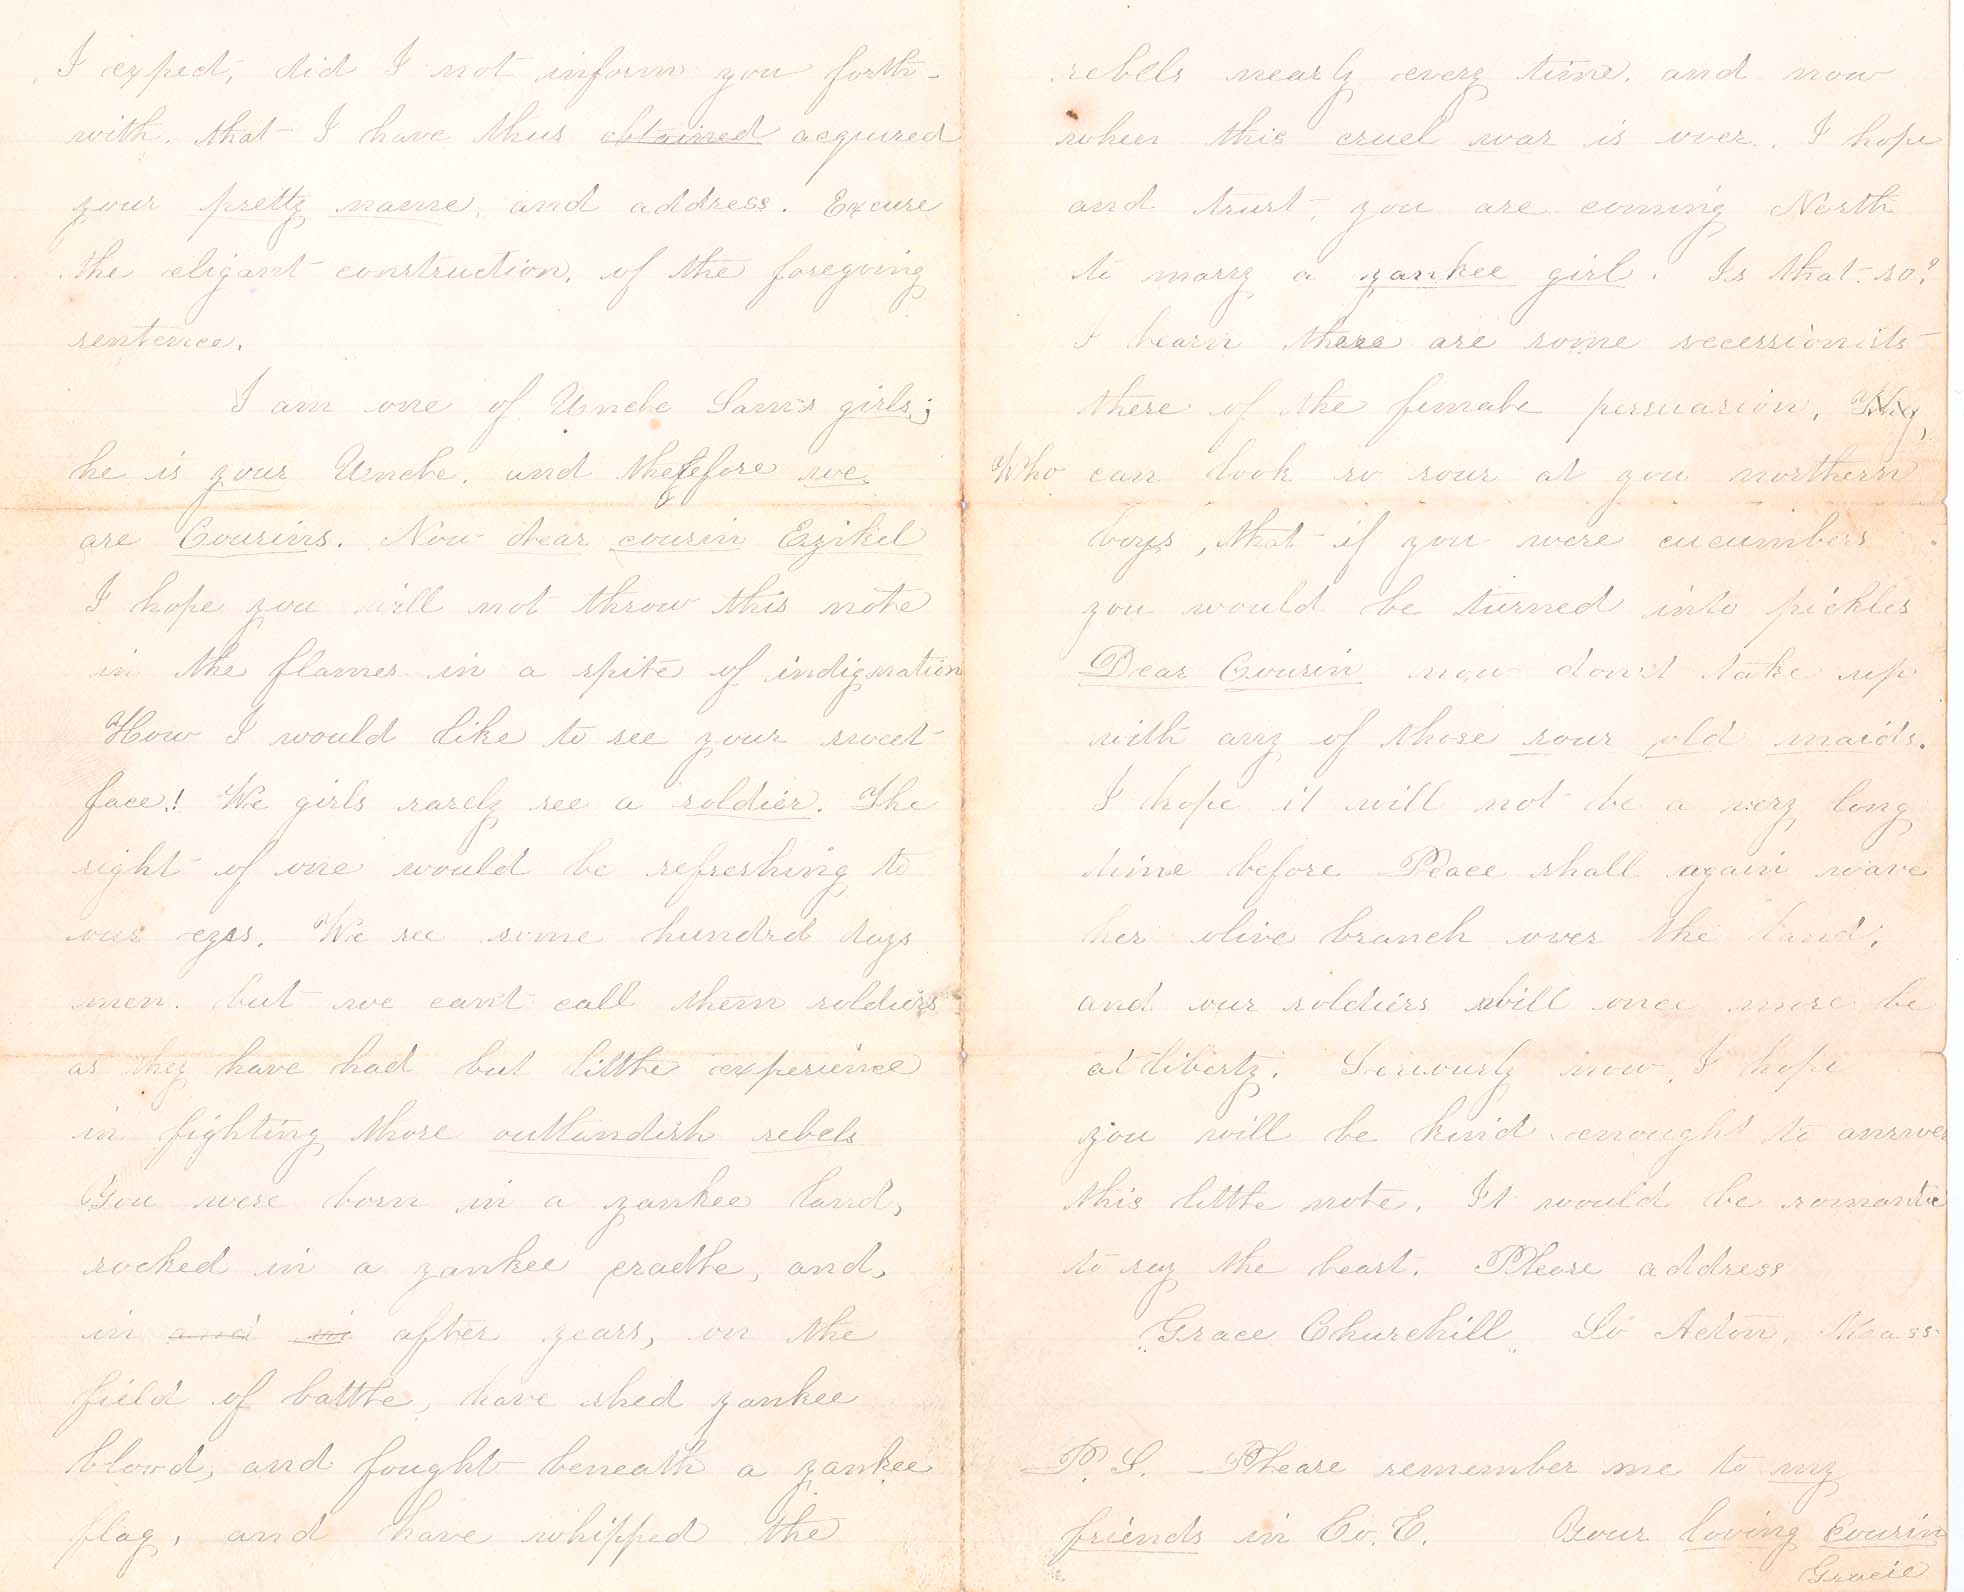 I expect, did I not inform you forth-
with. that I have thus obtained acquired
your pretty name, and address. Excuse
the eligant construction, of the foregoing
sentence.
I am one of Uncle Sam's girls;
he is your Uncle, and therefore we
are Cousins. Now dear cousin Ezikel
I hope you will not throw this note
in the flames in a spite of indignation
How I would like to see your sweet
face! We girls rarely see a soldier. The
sight of one would be refreshing to
our eyes. We see some hundrd days
men. but we can't call them soldiers
as they have had but little experience
in fighting those outlandish rebels
You were born in a yankee land,
rocked in a yankee cradle, and,
in and in after years, on the
field of battle, have shed yankee
blood, and fought beneath a yankee
flag, and have whipped the
rebels nearly every time. and now
when this cruel war is over. I hope
and trust, you are coming North
to marry a yankee girl. Is that so?
I learn there are some secessionists
there of the female persuasion, They,
Who can look so sour at you northern
boys, that if you were cucumbers
you would be turned into pickles
Dear Cousin now don't take up
with any of those sour old maids.
I hope it will not be a very long
time before Peace shall again wave
her olive branch over the land,
and our soldiers will once more be
at liberty. Seriously now, I hope
you will be kind enought to answer
this little note. It would be romantic
to say the least. Please address
"Grace Churchill" So Acton, Mass
P.S. Please remember me to my
friends in Co. E. Your loving Cousin
Gracie